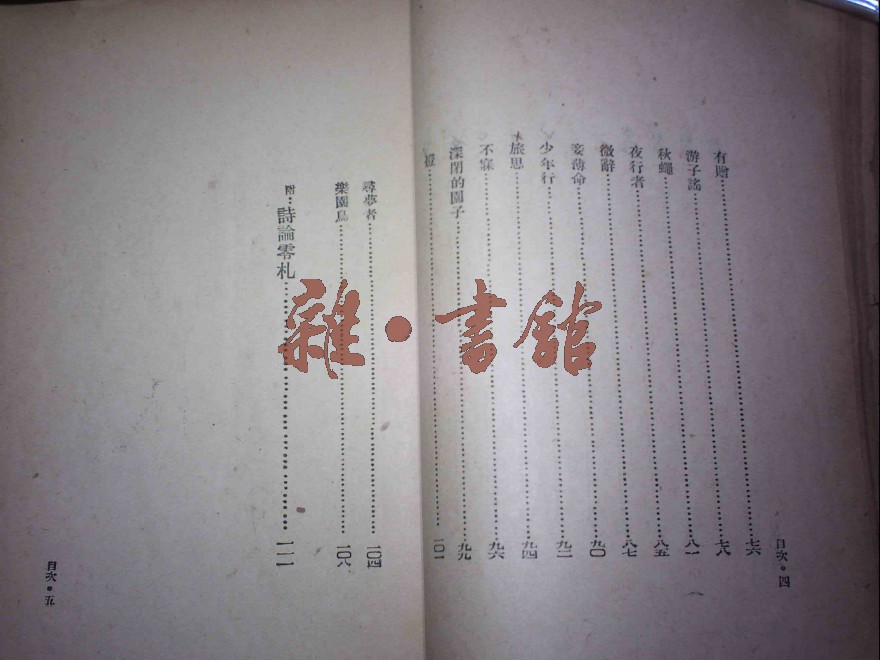 有贈……七六
游子謠……七八
秋蠅……八一
夜行者……八五
微辭……八七
妾薄命……九〇
少年行……九二
旅思……九四
不寐……九六
深閉的園子……九九
燈……一〇一
目次•四
尋夢者……一〇四
樂園鳥……一〇八
附：詩論零札……一一一
目次•五
雜•書館